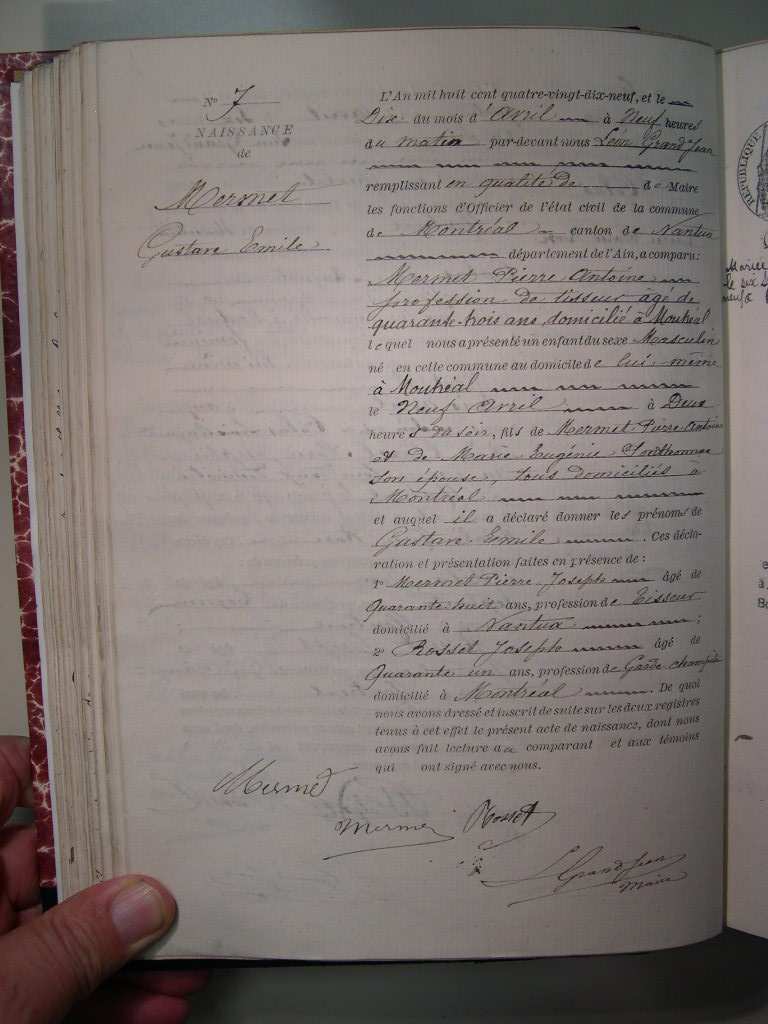 N° 7
NAISSANCE
de
Mermet
Gustave Emile
L'An mil huit cent quatre-vingt-dix-neuf, et le
Dix du mois d'Avril à Neuf heures
du matin par-devant nous Léon Grandjean
remplissant en qualité de de Maire
les fonctions d'Officier de l'état civil de la commune
de Montréal canton de Nantua
département de l'Ain, a comparu:
Mermet Pierre Antoine
profession de tisseur âgé de
quarante-trois ans, domicilié à Montréal
lequel nous a présenté un enfant du sexe Masculin
né en cette commune au domicile de lui même
à Montréal
le Neuf Avril à Deux
heures du soir, fils de Mermet Pierre Antoine
et de Marie Eugénie
son épouse, tous domiciliés à
Montréal
et auquel il a déclaré donner les prénoms de
Gustave Emile. Ces décla-
ration et présentation faites en présence de:
1° Mermet Pierre Joseph âgé de
Quarante huit ans, profession de Tisseur
domicilié à Nantua;
2° Rosset Joseph âgé de
Quarante un ans, profession de Garde champêtre
domicilié à Montréal. De quoi
nous avons dressé et inscrit de suite sur les deux registres
tenus à cet effet le présent acte de naissance, dont nous
avons fait lecture au comparant et aux témoins
qui ont signé avec nous.
Mermet
Mermet Rosset
L Grandjean
Maire
RÉPUBLIQUE
Mariée
le six